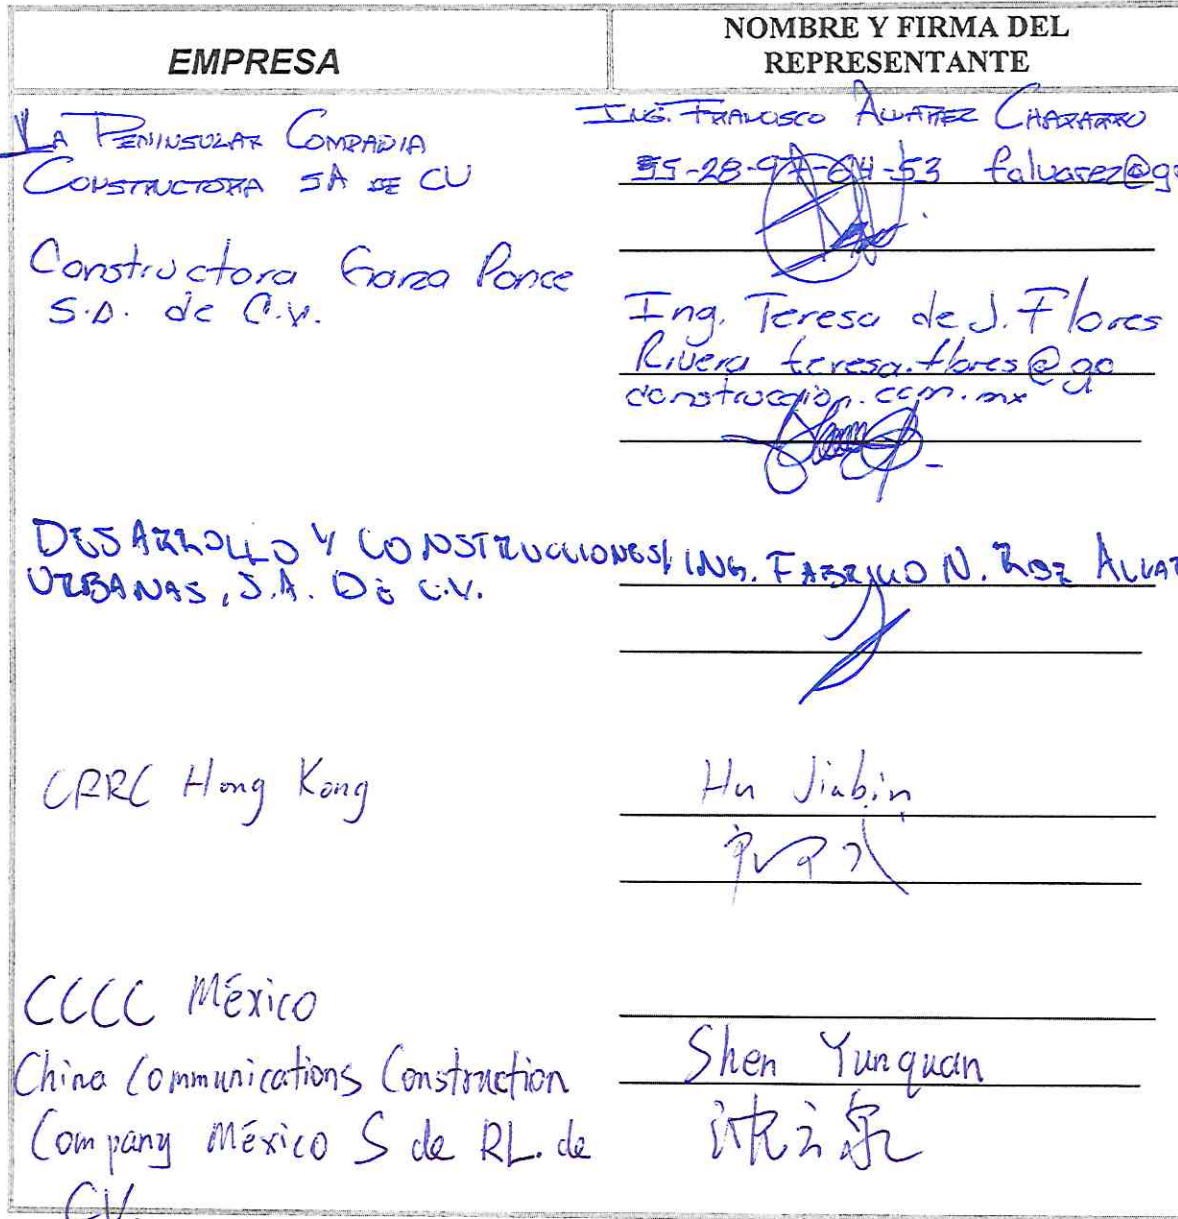 EMPRESA
NOMBRE Y FIRMA DEL
REPRESENTANTE
LA PENINSULAR COMPAÑIA
CONSTRUCTORA SA DE CV
ING. FRANCISCO ALVAREZ CHAPARRO
falvarez@g
Constructora Garza Ponce
S.A. de C.V.
Ing. Teresa de J. Flores
Rivera teresa.flores@gp
construccion.com.mx
DESARROLLO Y CONSTRUCCIONES
URBANAS, S.A. DE C.V.
ING. FABRICIO N. RDZ ALVAR
CRRC Hong Kong
Hu Jiabin
CCCC México
China Communications Construction
Company México S de RL. de
CV.
Shen Yunquan
沈云泉